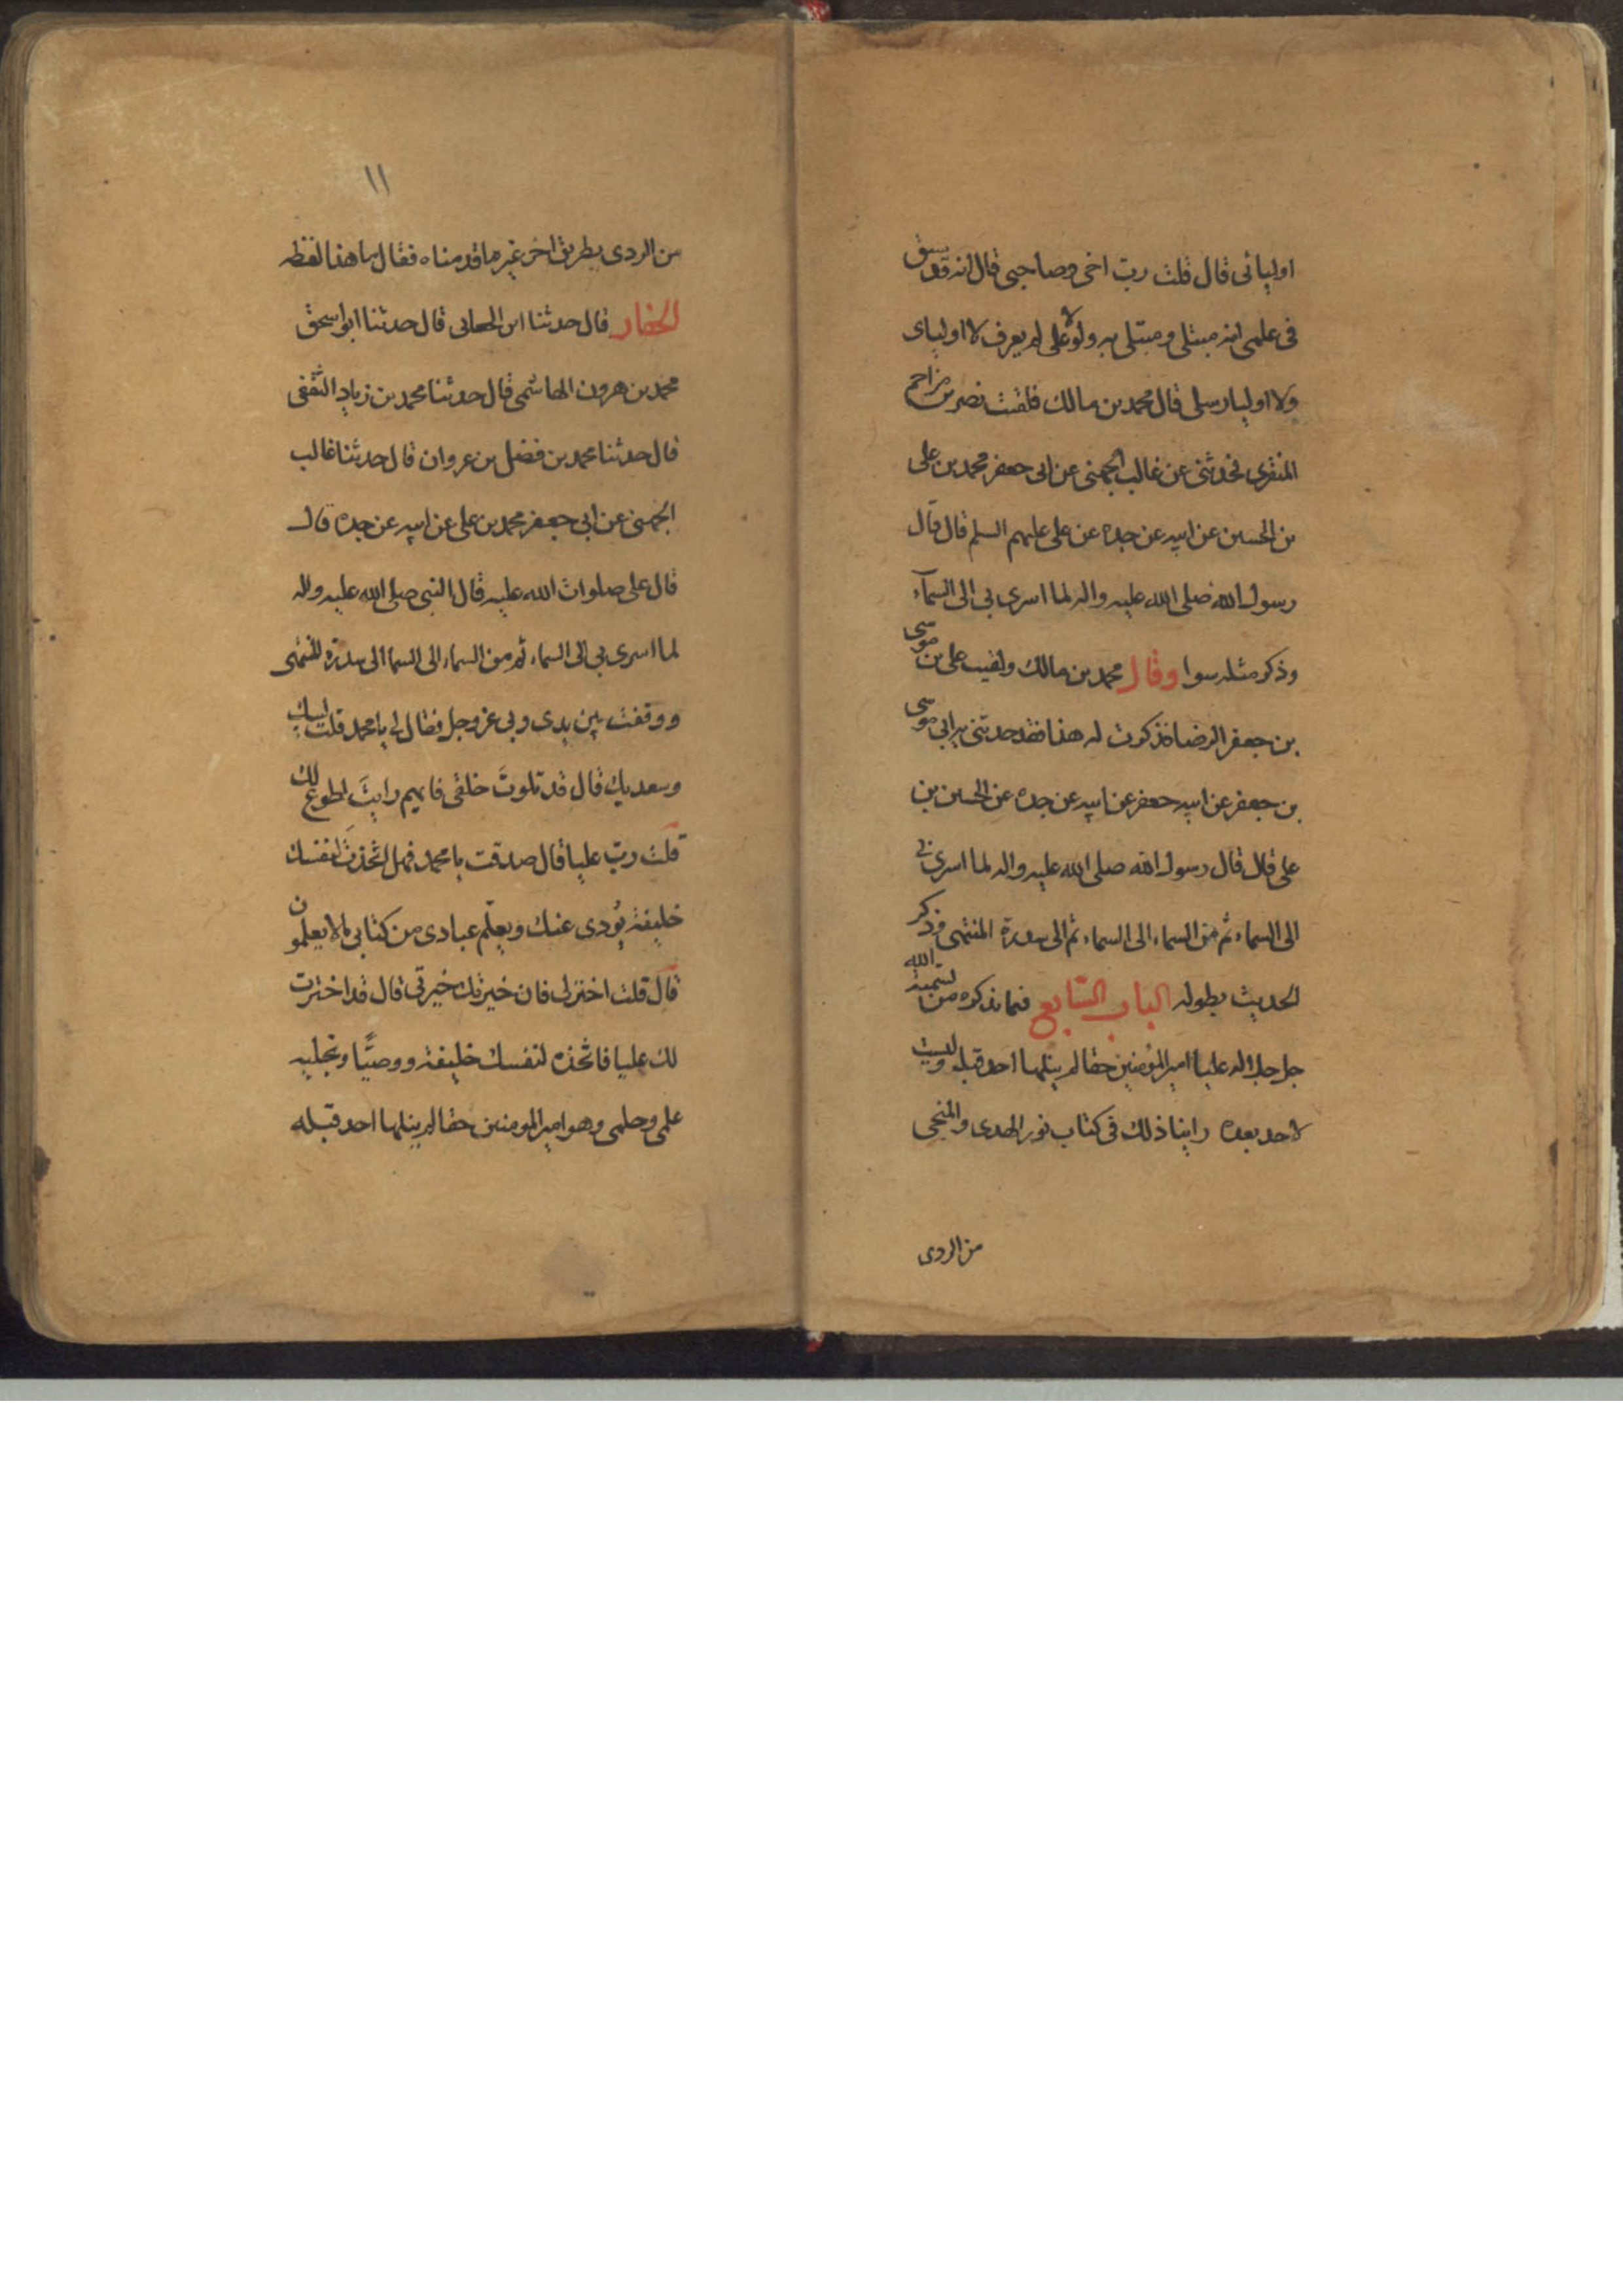 اوليائى قال قلت رب اخى وصاحبى قال انه قد سبق
فى علمى انه مبتلى ومبتلى به ولولا على لم يعرف لا اوليائى
ولا اوليا رسلى قال محمد بن مالك فلقيت نصر بن مزاحم
المنقرى فحدثنى عن غالب الجهنى عن ابى جعفر محمد بن على
بن الحسين عن ابيه عن جده عن على عليهم السلم قال قال
رسول الله صلى الله عليه واله لما اسرى بى الى السمآء
وذكر مثله سوا وقال محمد بن مالك ولقيت على بن موسى
بن جعفر الرضا فذكرت له هذا فقد حدثنى به ابى موسى
بن جعفر عن ابيه جعفر عن ابيه عن جده عن الحسين بن
على قال قال رسول الله صلى الله عليه واله لما اسرى بى
الى السماء ثم من السماء الى السماء ثم الى سدرة المنتهى وذكر
الحديث بطوله الباب السابع فيما نذكره من تسمية الله
جل جلاله عليا امير المؤمنين حقا لم ينلها احد قبله وليست
لاحد بعده راينا ذلك فى كتاب نور الهدى والمنجى
من الردى
١١
من الردى بطريق اخر غير ما قدمناه فقال ما هذا لفظه
الحفار قال حدثنا ابن الجعابى قال حدثنا ابو اسحق
محمد بن هرون الهاشمى قال حدثنا محمد بن زياد الثقفى
قال حدثنا محمد بن فضل بن عزوان قال حدثنا غالب
الجهنى عن ابى جعفر محمد بن على عن ابيه عن جده قال
قال على صلوات الله عليه قال النبى صلى الله عليه واله
لما اسرى بى الى السماء ثم من السماء الى السما الى سدرة المنتهى
ووقفت بين يدى ربى عز وجل فقال لى يا محمد قلت لبيك
وسعديك قال قد بلوتَ خلقى فايهم رايتَ اطوع لك
قلت ربّ عليا قال صدقت يا محمد فهل اتخذتَ لنفسك
خليفة يؤدى عنك ويعلّم عبادى من كتابى ما لا يعلمون
قال قلت اختر لى فان خيرتك خيرتى قال قد اخترت
لك عليا فاتخذه لنفسك خليفة ووصيًّا ونحليه
علمى وحلمى وهو امير المومنين حقا لم ينلها احد قبله